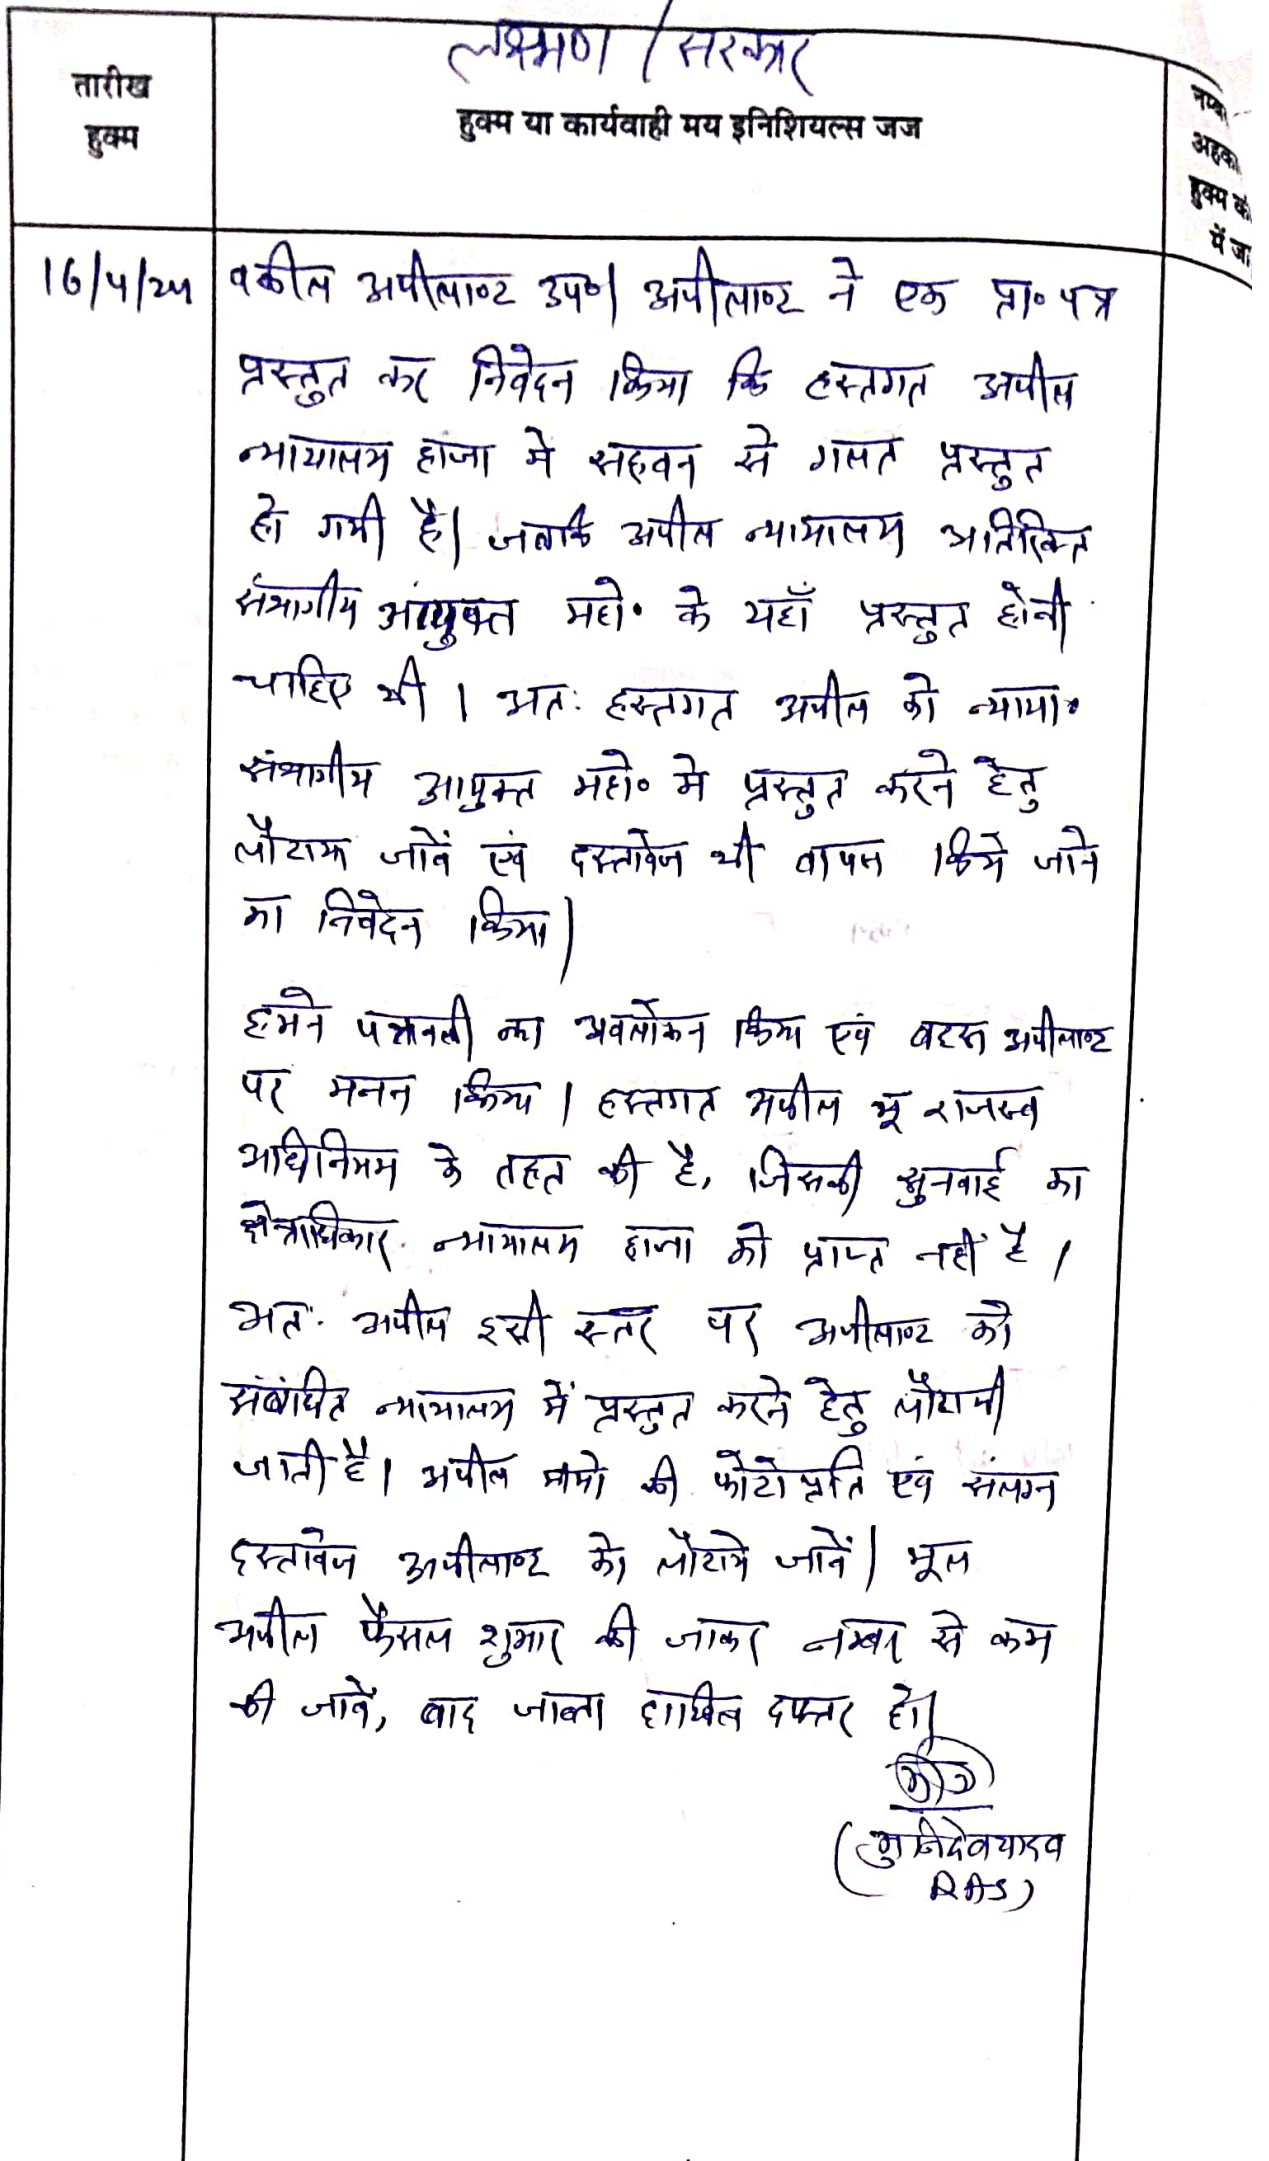 लक्ष्मण / सरकार
तारीख
हुक्म
हुक्म या कार्यवाही मय इनिशियल्स जज
नम्बर
अहका
हुक्म की
में जा
16/4/24
वकील अपीलाण्ट उप०। अपीलाण्ट ने एक प्रा० पत्र
प्रस्तुत कर निवेदन किया कि हस्तगत अपील
न्यायालय हाजा मे सहवन से गलत प्रस्तुत
हो गयी है। जबकि अपील न्यायालय अतिरिक्त
संभागीय आयुक्त महो० के यहाँ प्रस्तुत होनी
चाहिए थी। अतः हस्तगत अपील को न्याया०
संभागीय आयुक्त महो० मे प्रस्तुत करने हेतु
लौटाया जावें एवं दस्तावेज भी वापस किये जाने
का निवेदन किया।
हमने पत्रावली का अवलोकन किया एवं बहस अपीलाण्ट
पर मनन किया। हस्तगत अपील भू राजस्व
अधिनियम के तहत की है, जिसकी सुनवाई का
क्षेत्राधिकार न्यायालय हाजा को प्राप्त नहीं है।
अतः अपील इसी स्तर पर अपीलाण्ट को
संबंधित न्यायालय में प्रस्तुत करने हेतु लौटायी
जाती है। अपील मीमो की फोटोप्रति एवं संलग्न
दस्तावेज अपीलाण्ट को लौटाये जावें। मूल
अपील फैसल शुमार की जाकर नम्बर से कम
की जावें, बाद जाब्ता दाखिल दफ्तर हो।
(मुनिदेव यादव
RAS)